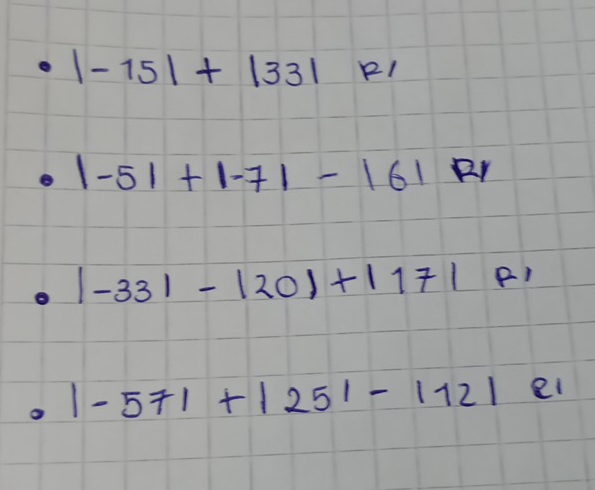 • |-15| + |33| R/
• |-5| + |-7| - |6| R/
• |-33| - |20| + |17| R/
• |-57| + |25| - |12| R/